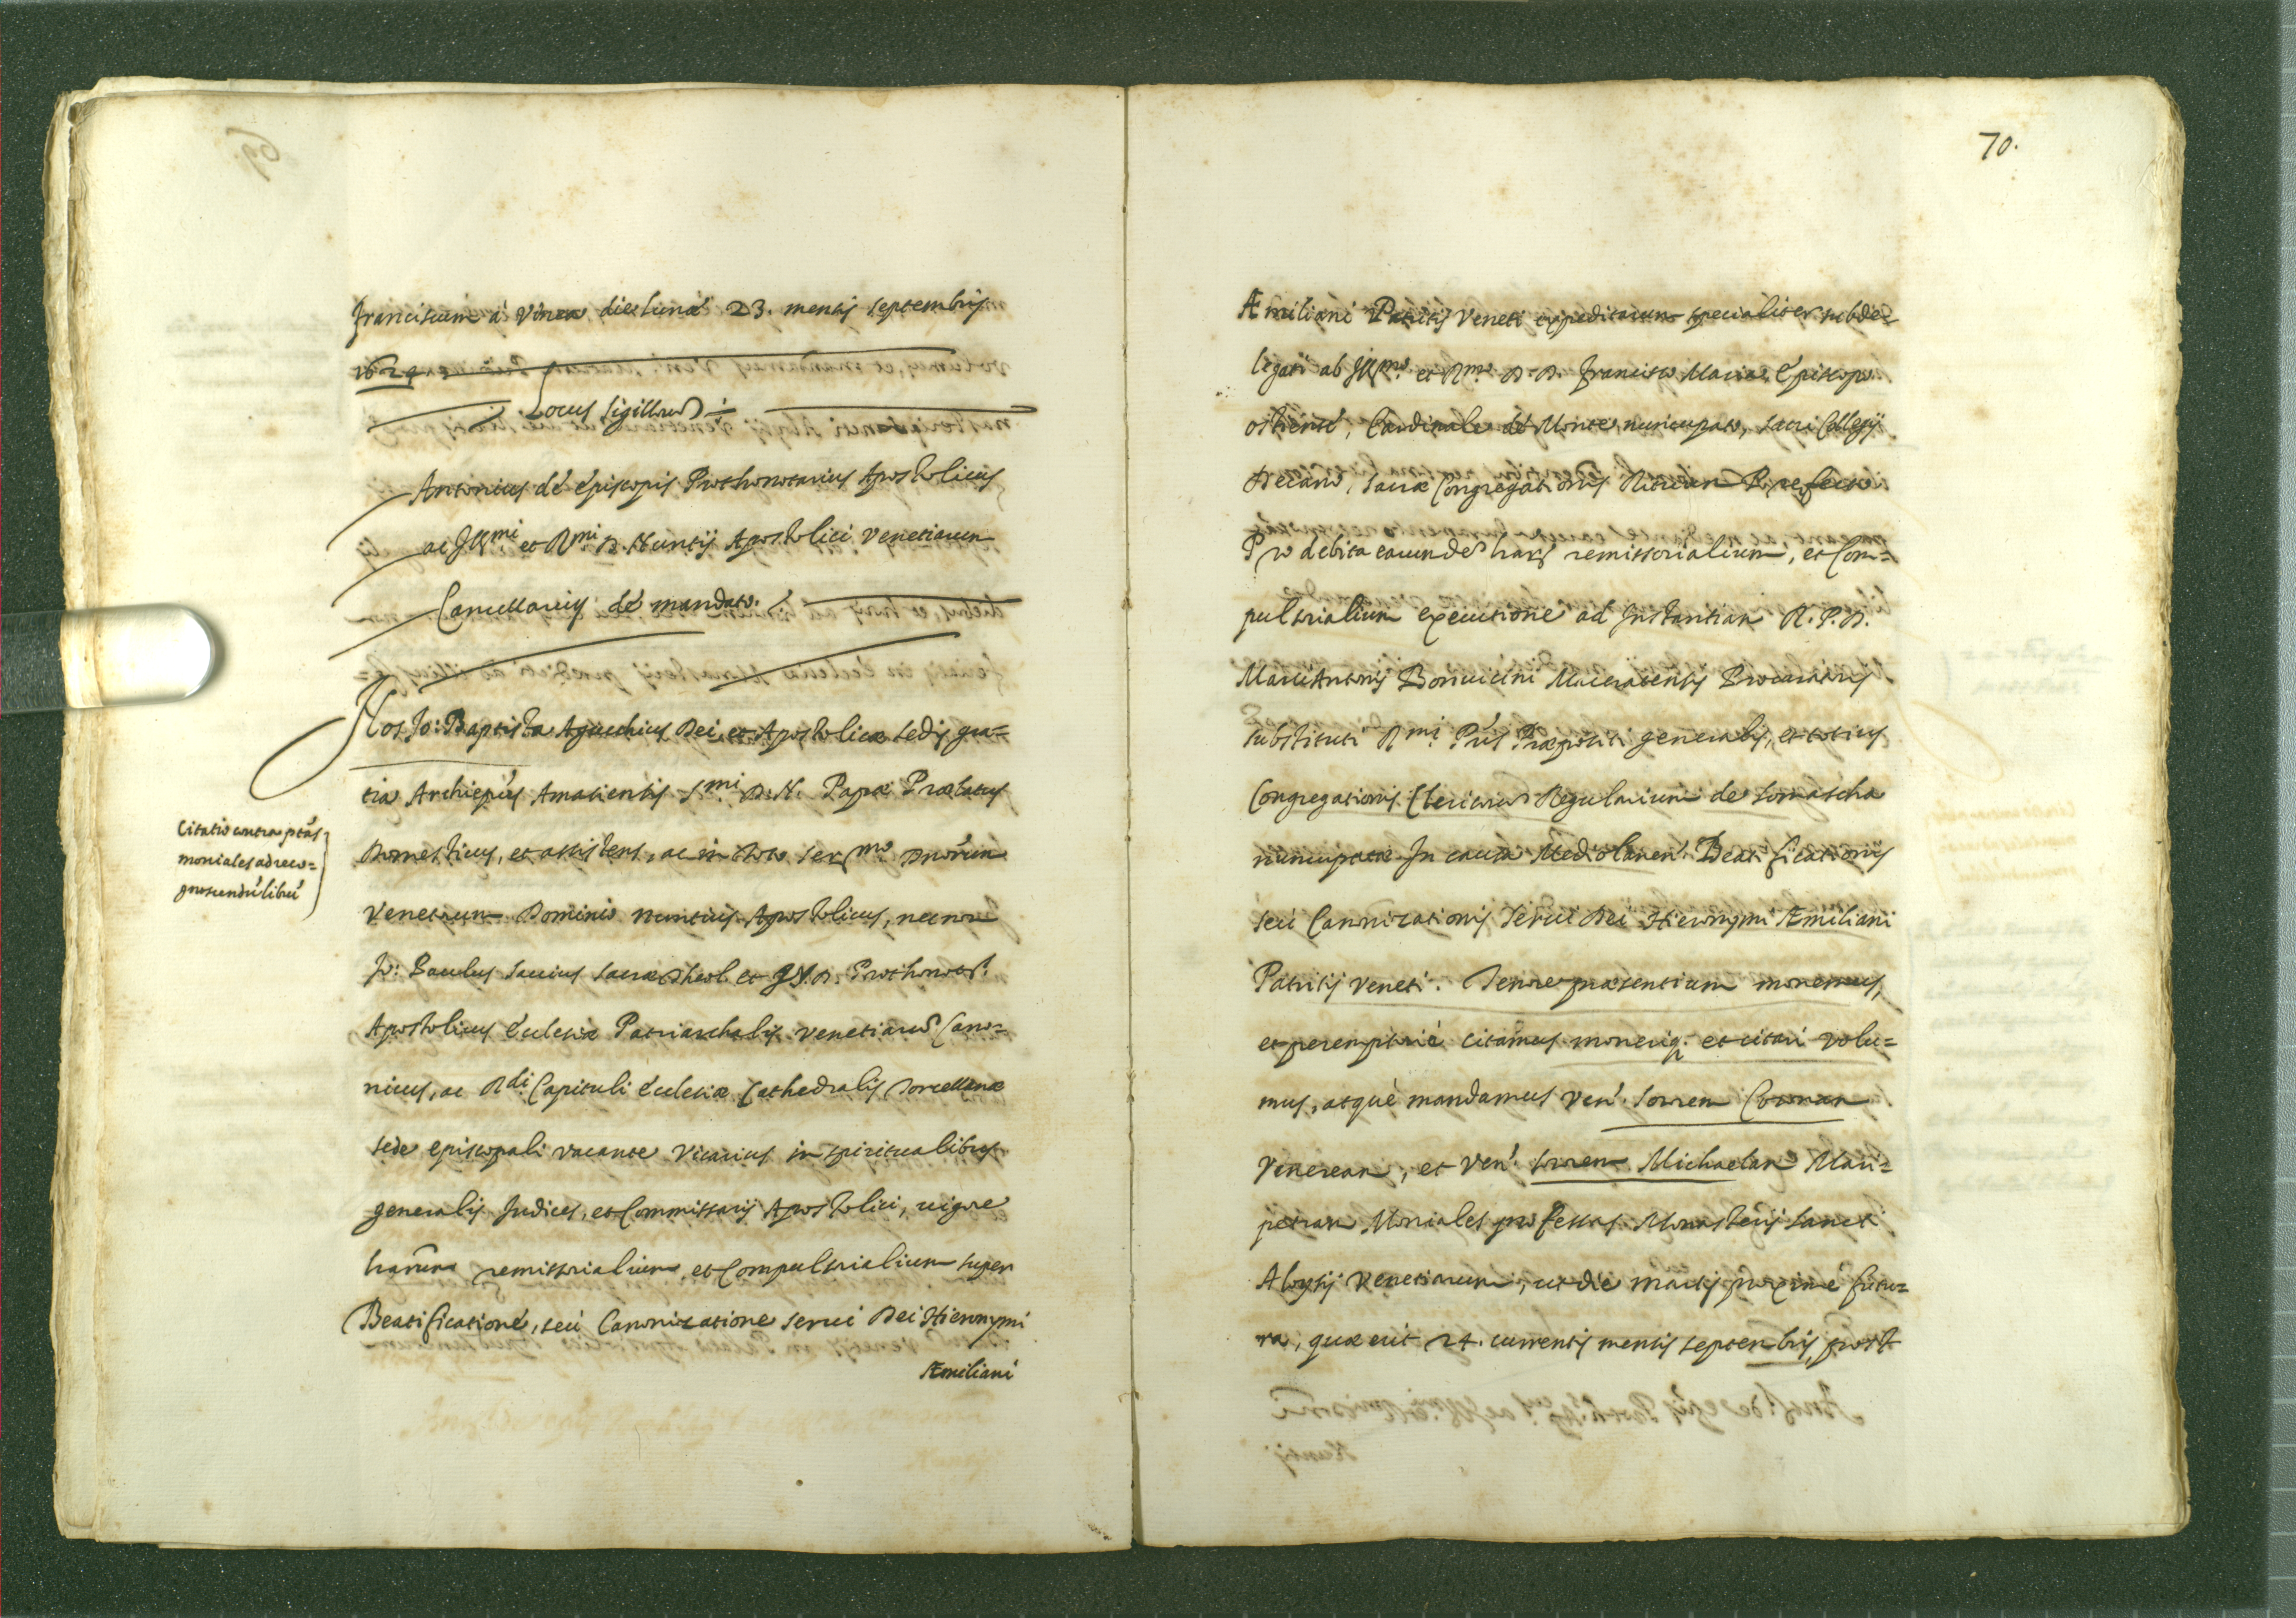 Franciscum à Vinea die Lunæ 23. mensis septembris
1624
Locus sigillorũ
Antonius de episcopis Prothonotarius Apostolicus
ac Ill.mi et R.mi D. Nuntij Apostolici Venetiarum
Cancellarius de mandato.
Nos Jo: Baptista Agucchius Dei, et Apostolicæ sedis gra=
tia Archiep̃us Amasiensis S.mi D. N. Papæ Prælatus
Domesticus, et assistens, ac in toto Ser.mo Dnõrum
Venetorum Dominio nuntius Apostolicus, necnon
Jo: Paulus Sauius sacræ theol. et J.V.D. Prothonot.
Apostolicus Ecclesiæ Patriarchalis Venetiarũ Cano=
nicus, ac R.di Capituli Ecclesiæ Cathedralis Torcellanæ
sede episcopali vacante Vicarius in spiritualibus
generalis Judices, et Commissarij Apostolici, uigore
harum remissorialium, et Compulsorialium super
Beatificatione, seù Canonizatione serui Dei Hieronymi
Æmiliani
Citatio contra p̃tas
moniales ad reco=
gnoscendũ librũ
70.
Æmiliani Patritij Veneti expeditarum specialiter subde=
legati ab Ill.mo et R.mo D. D. Francisco Maria Episcopo
ostiense, Cardinale de Monte nuncupato, sacri Collegij
Decano, sacræ Congregationis Rituum Præfecto
Pro debita earundẽ harũ remissorialium, et Com=
pulsorialium executione ad Instantiam R. P. D.
Marci Antonij Bonuicini Maceratensis Procuratoris
substituti R.mi P̃ris Præpositi generalis, et totius
Congregationis Clericorũ Regularium de somascha
nuncupatæ In causa Mediolanen. Beatificationis
seù Canonizationis Serui Dei Hieronymi Æmiliani
Patritij Veneti. Tenore præsentium monemus,
et peremptoriè citamus moneriq. et citari volu=
mus, atquè mandamus Ven. sororem Coronam
Veneream, et Ven. sororem Michaelam Mari=
petram Moniales professas Monasterij Sancti
Aloysij Venetiarum, ut die martis proximè futu=
ra, quæ erit 24. currentis mensis septembris, post